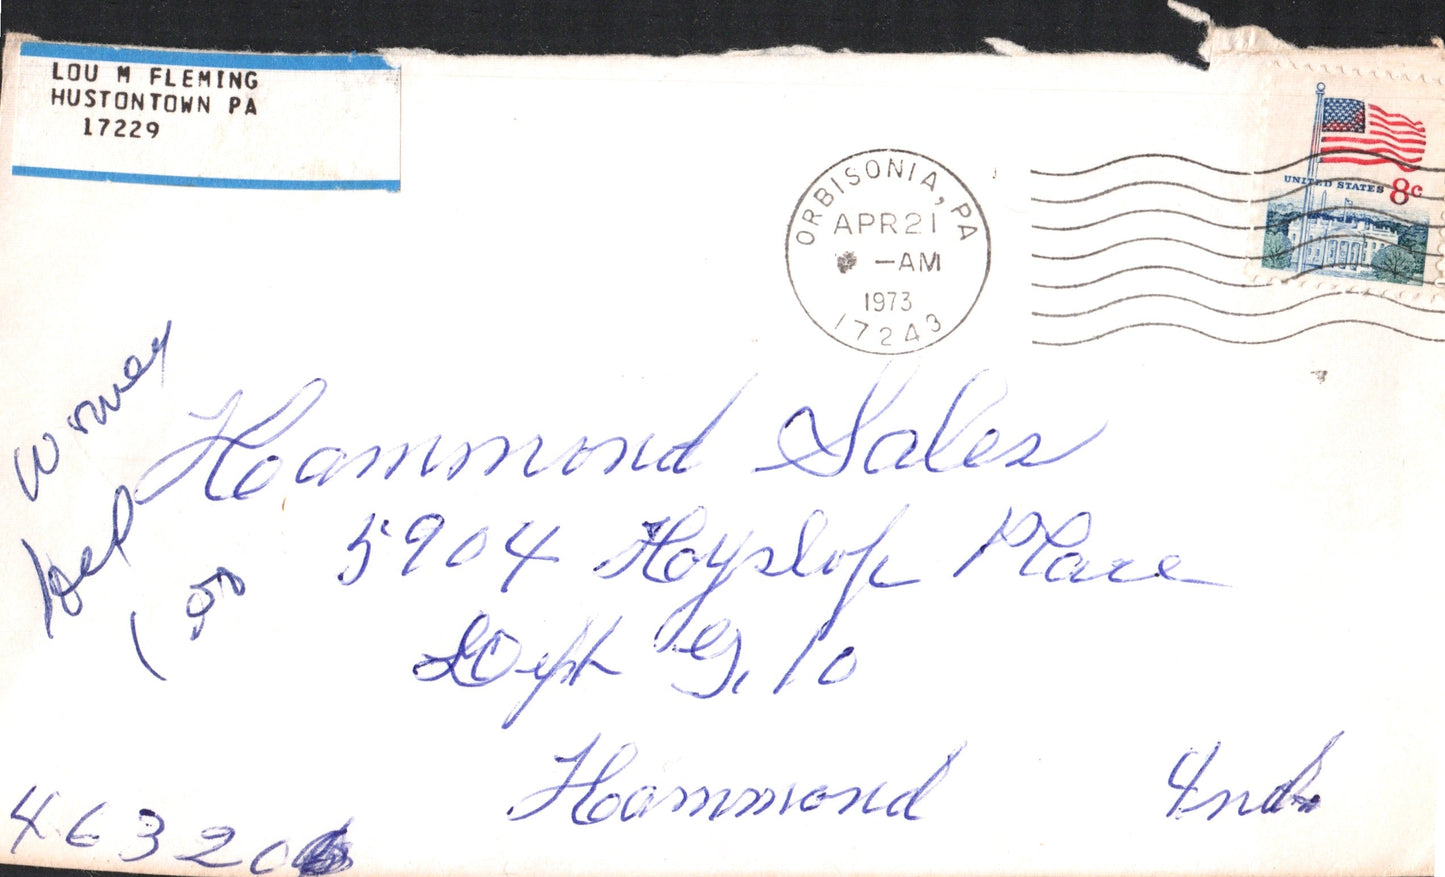 LOU M FLEMING
HUSTONTOWN PA
17229
ORBISONIA, PA
APR 21
-AM
1973
17243
UNITED STATES 8c
Hammond Sales
5904 Hoyslop Place
Dept G, 10
Hammond Ind.
46320